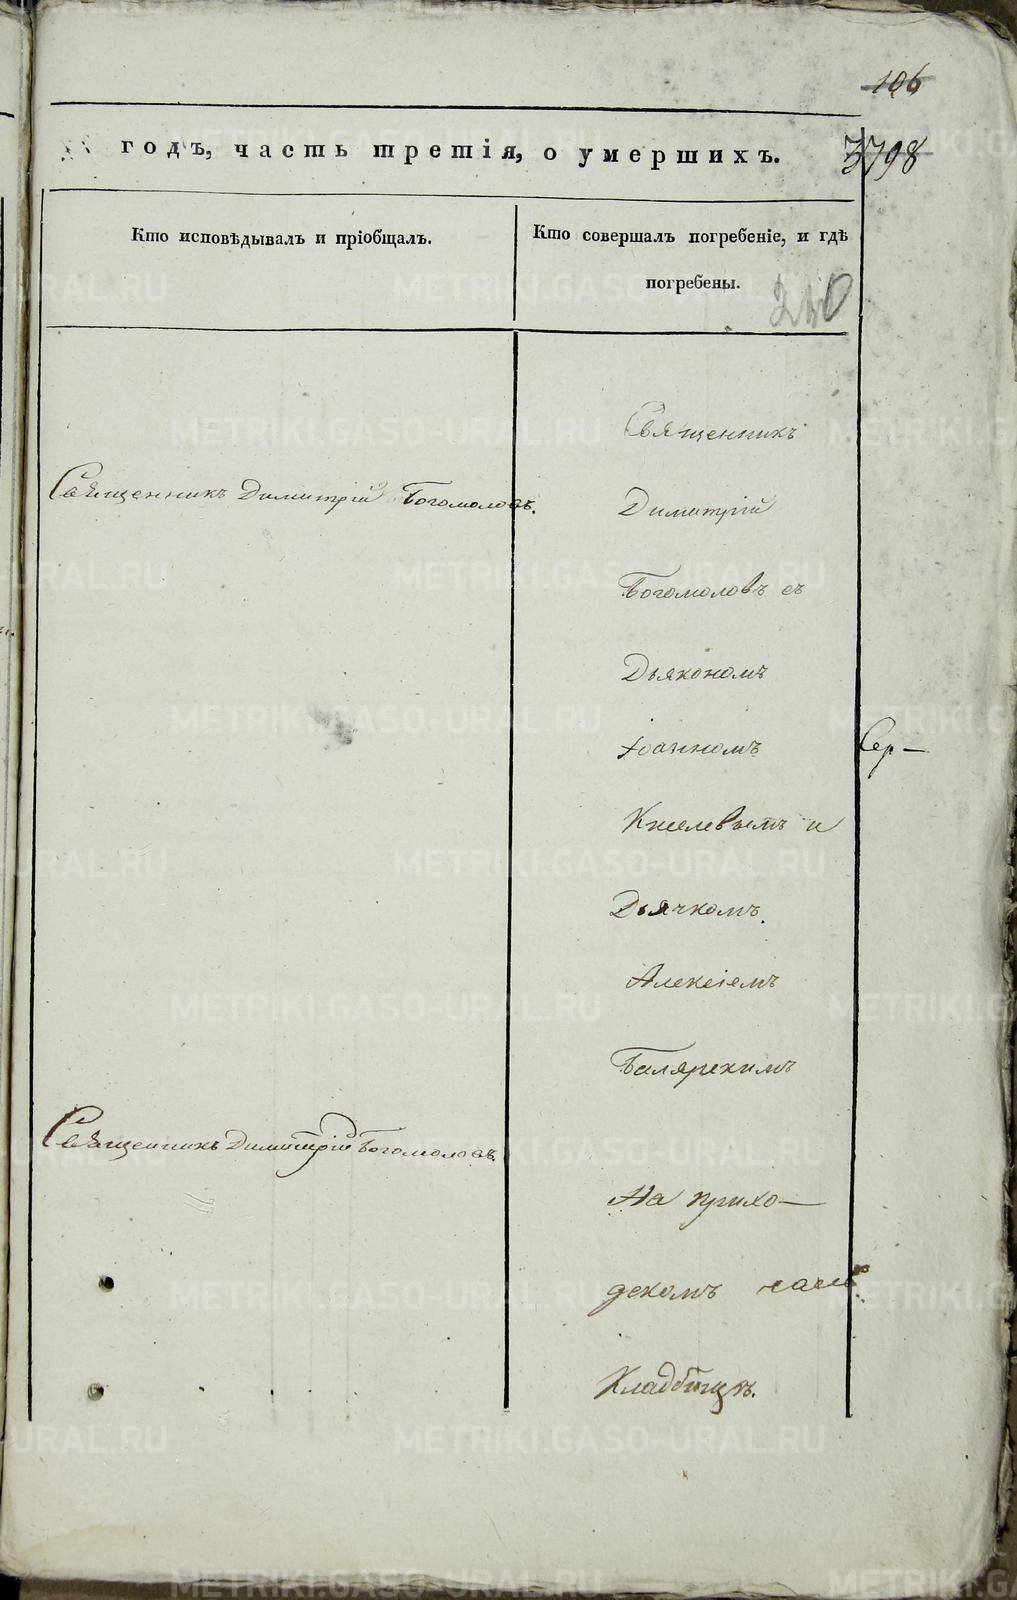 106
годъ, часть третія, о умершихъ.
3798
Кто исповѣдывалъ и пріобщалъ.
Кто совершалъ погребеніе, и гдѣ
погребены.
240
Священникъ
Священникъ Димитрій Богомоловъ.
Димитрій
Богомоловъ съ
Дьякономъ
Іоанномъ
Сер-
и
Дьячкомъ
Алексіемъ
Священникъ Димитрій Богомоловъ.
На прихо-
дскомъ
Кладбищѣ.
METRIKI.GASO-URAL.RU